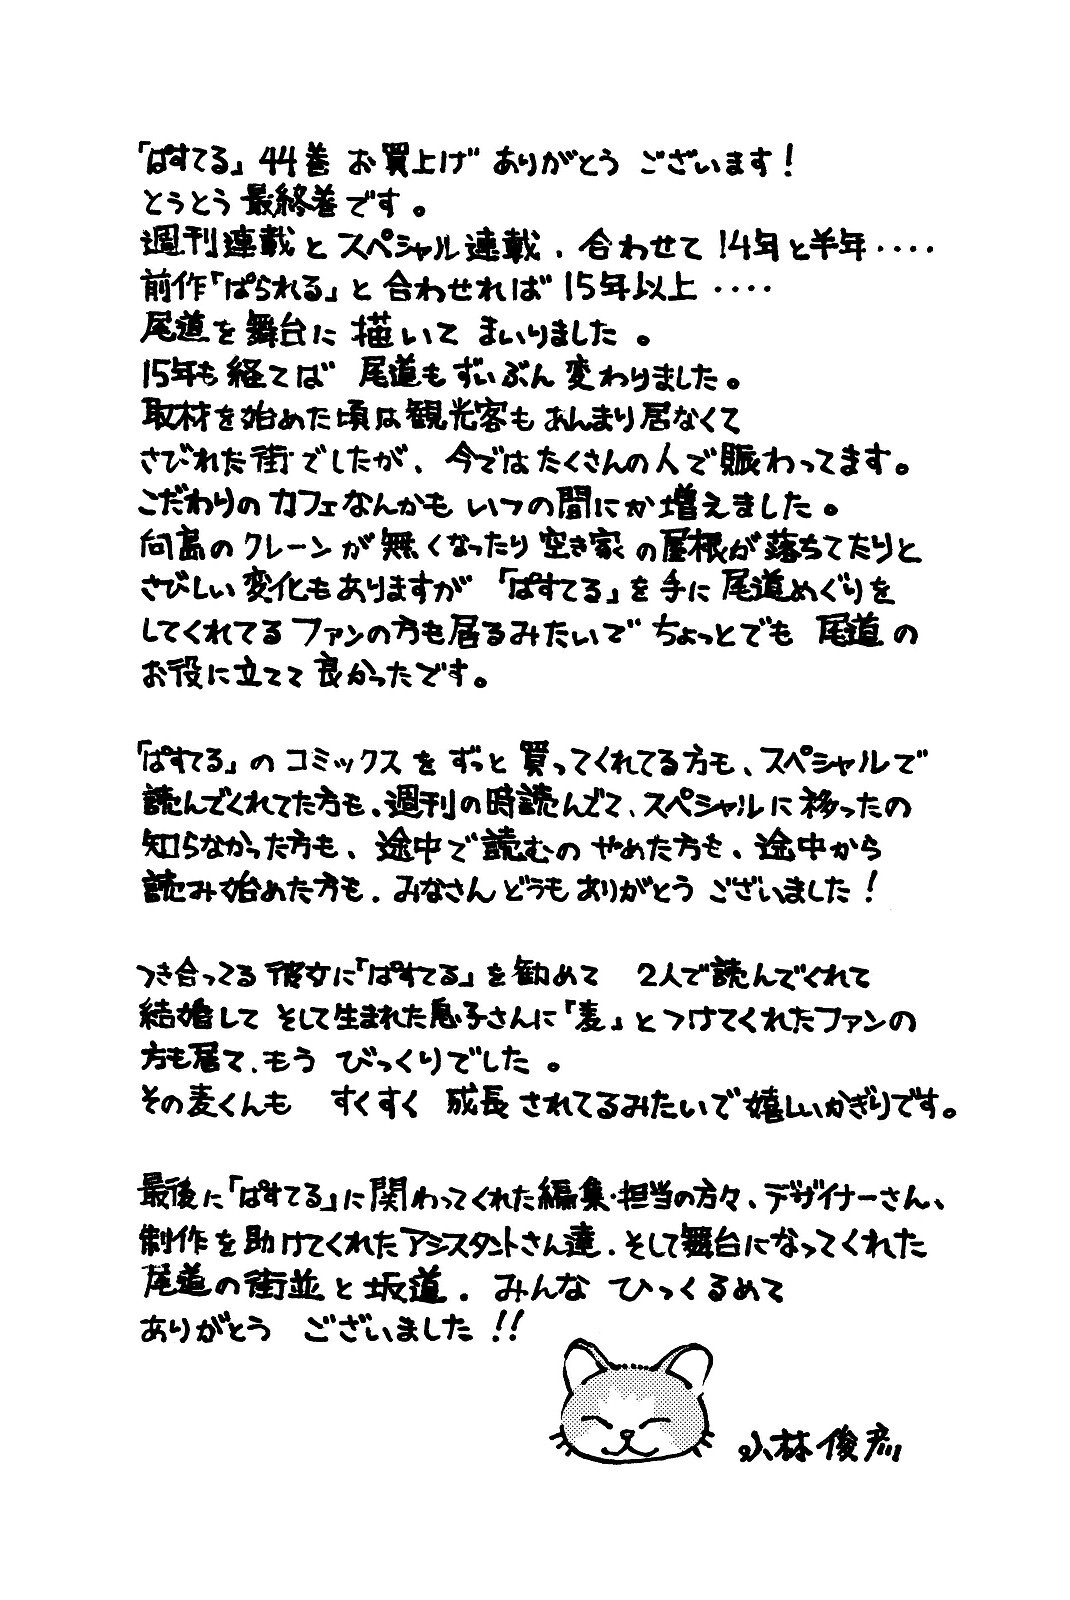 「ぱすてる」44巻 お買上げ ありがとう ございます!
とうとう最終巻です。
週刊連載とスペシャル連載、合わせて14年と半年‥‥
前作「ぱられる」と合わせれば15年以上‥‥
尾道を舞台に描いてまいりました。
15年も経てば 尾道もずいぶん変わりました。
取材を始めた頃は観光客もあんまり居なくて
さびれた街でしたが、今ではたくさんの人で賑わってます。
こだわりのカフェなんかもいつの間にか増えました。
向島のクレーンが無くなったり空き家の屋根が落ちてたりと
さびしい変化もありますが「ぱすてる」を手に尾道めぐりを
してくれてるファンの方も居るみたいで ちょっとでも 尾道の
お役に立てて良かったです。

「ぱすてる」のコミックスをずっと買ってくれてる方も、スペシャルで
読んでくれてた方も、週刊の時読んでて、スペシャルに移ったの
知らなかった方も、途中で読むのやめた方も、途中から
読み始めた方も、みなさんどうもありがとうございました!

つき合ってる彼女に「ぱすてる」を勧めて 2人で読んでくれて
結婚して そして生まれた息子さんに「麦」とつけてくれたファンの
方も居て、もう びっくりでした。
その麦くんも すくすく 成長されてるみたいで嬉しいかぎりです。

最後に「ぱすてる」に関わってくれた編集・担当の方々、デザイナーさん、
制作を助けてくれたアシスタントさん達、そして舞台になってくれた
尾道の街並と坂道。みんな ひっくるめて
ありがとう ございました!!
小林俊彦